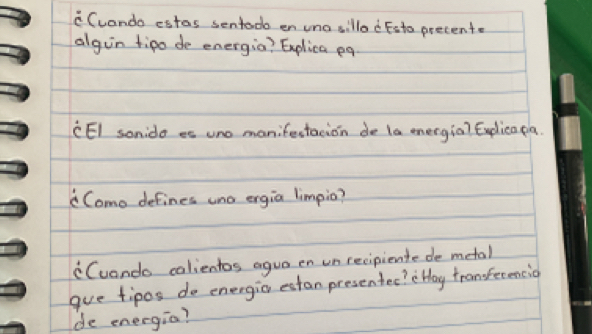 ¿Cuando estas sentado en una silla ¿Esta precente
algún tipo de energia? Explica pq
¿El sonido es una manifestación de la energía? Explica pq.
¿Como defines una ergia limpia?
¿Cuando calientas agua en un recipiente de metal
que tipos de energia estan presentes? ¿Hay transferencia
de energía?